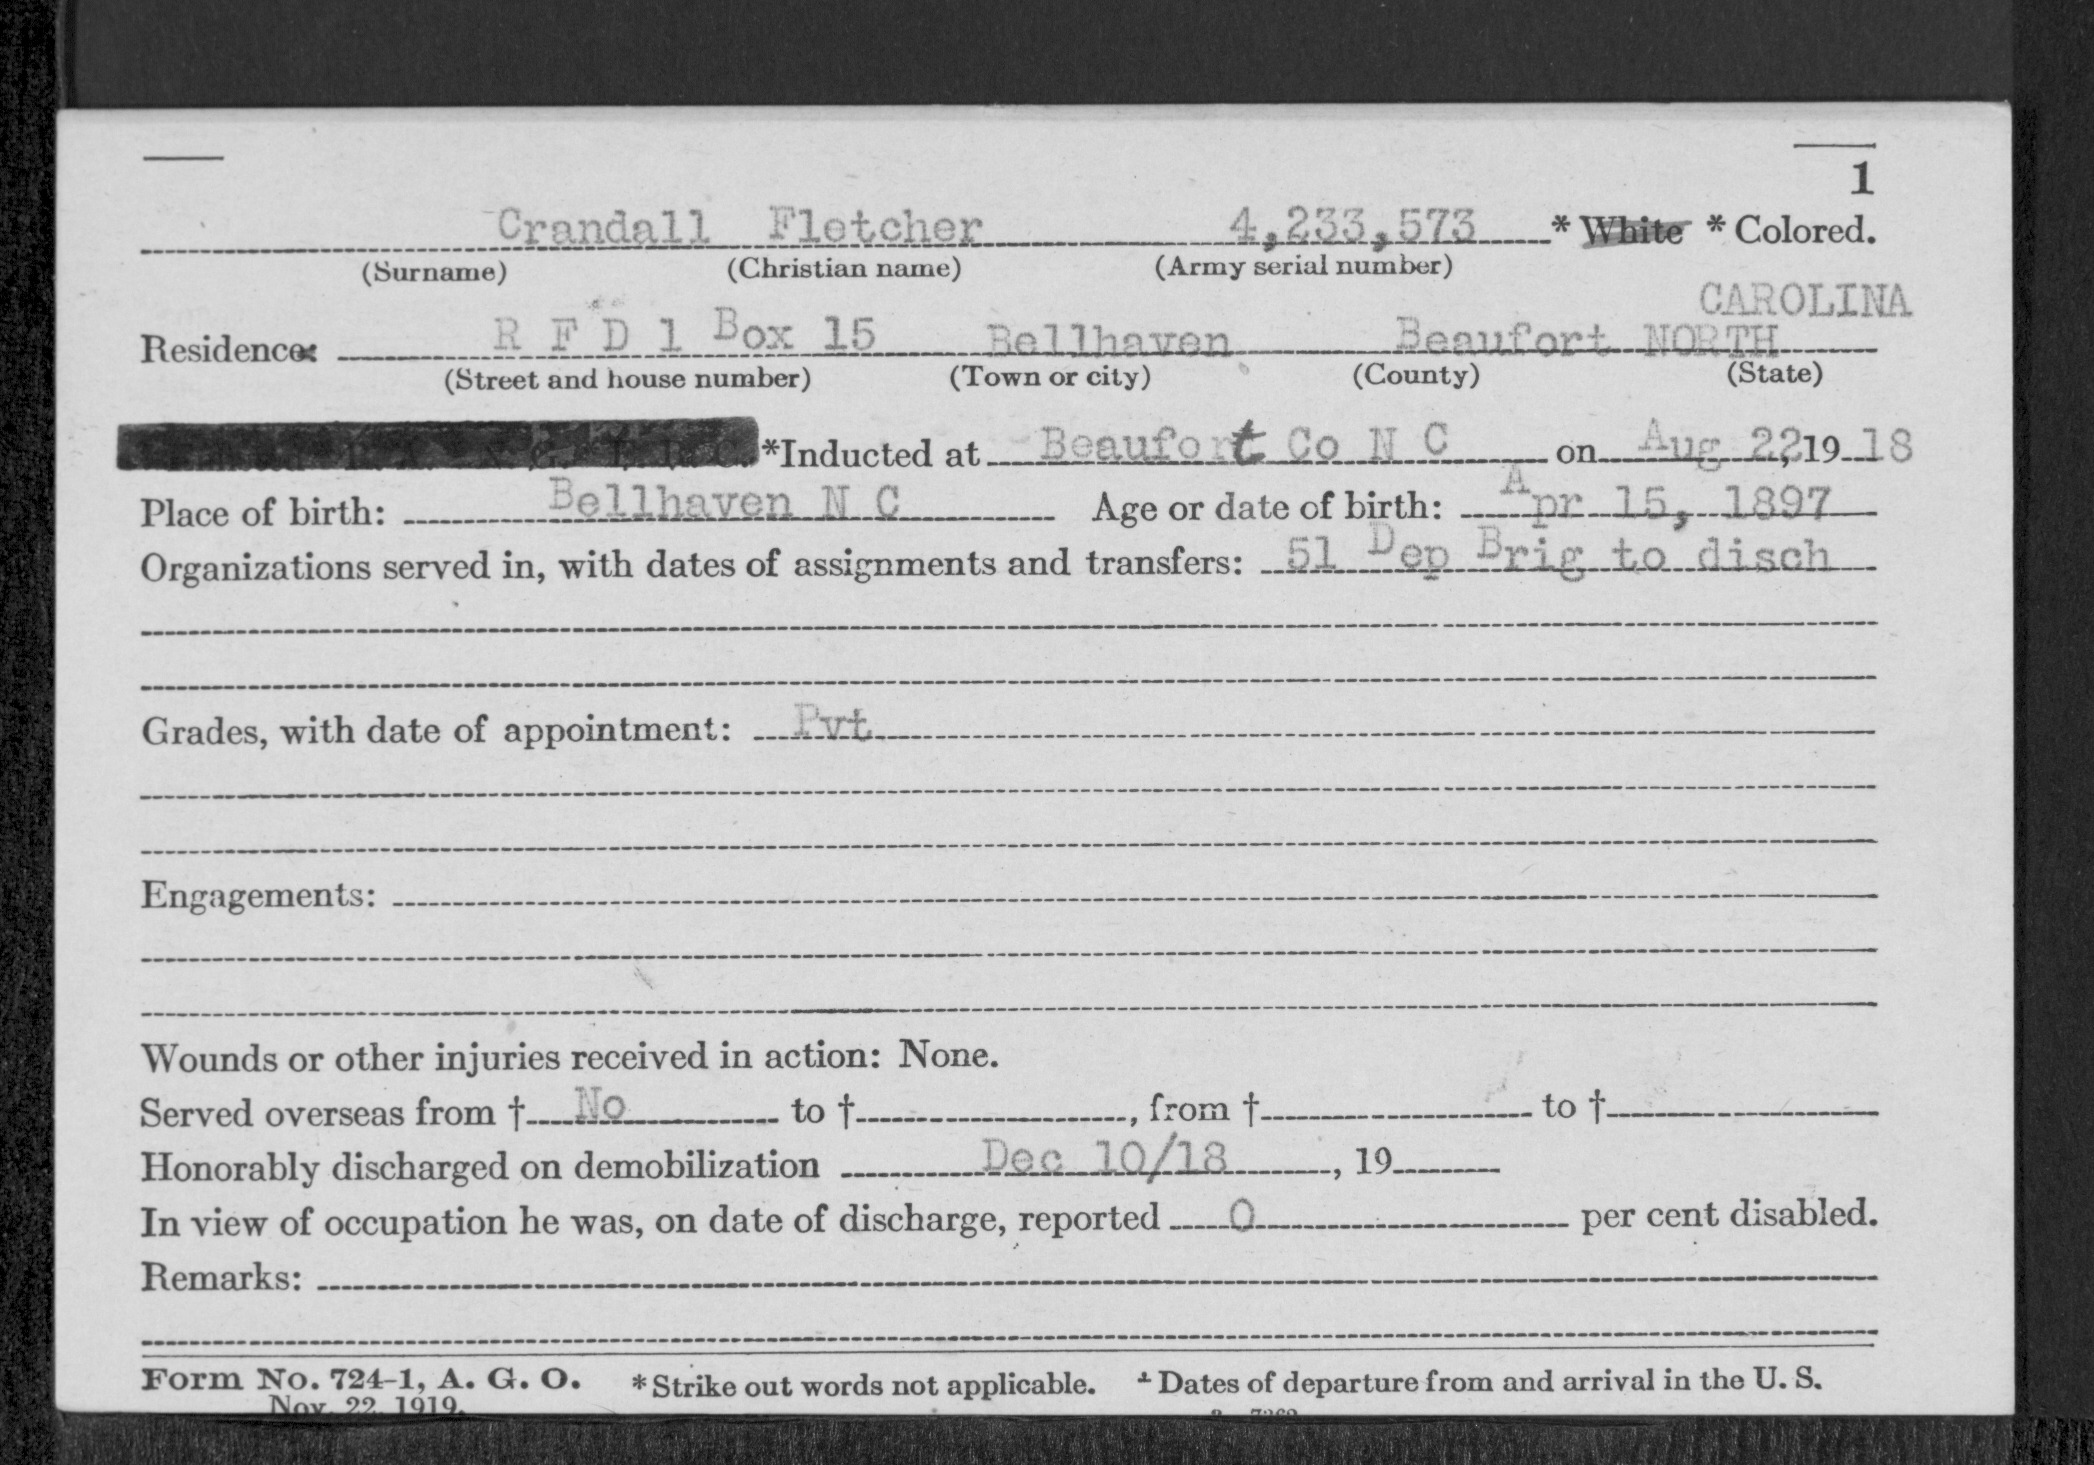 1
Crandall Fletcher 4,233,573 * White * Colored.
(Surname) (Christian name) (Army serial number)
CAROLINA
Residence: R F D 1 Box 15 Bellhaven Beaufort NORTH
(Street and house number) (Town or city) (County) (State)
*Inducted at Beaufort Co N C on Aug 22, 19 18
Place of birth: Bellhaven N C Age or date of birth: Apr 15, 1897
Organizations served in, with dates of assignments and transfers: 51 Dep Brig to disch
Grades, with date of appointment: Pvt
Engagements:
Wounds or other injuries received in action: None.
Served overseas from † No to † , from † to †
Honorably discharged on demobilization Dec 10/18 , 19
In view of occupation he was, on date of discharge, reported 0 per cent disabled.
Remarks:
Form No. 724-1, A. G. O. *Strike out words not applicable. † Dates of departure from and arrival in the U. S.
Nov. 22, 1919.